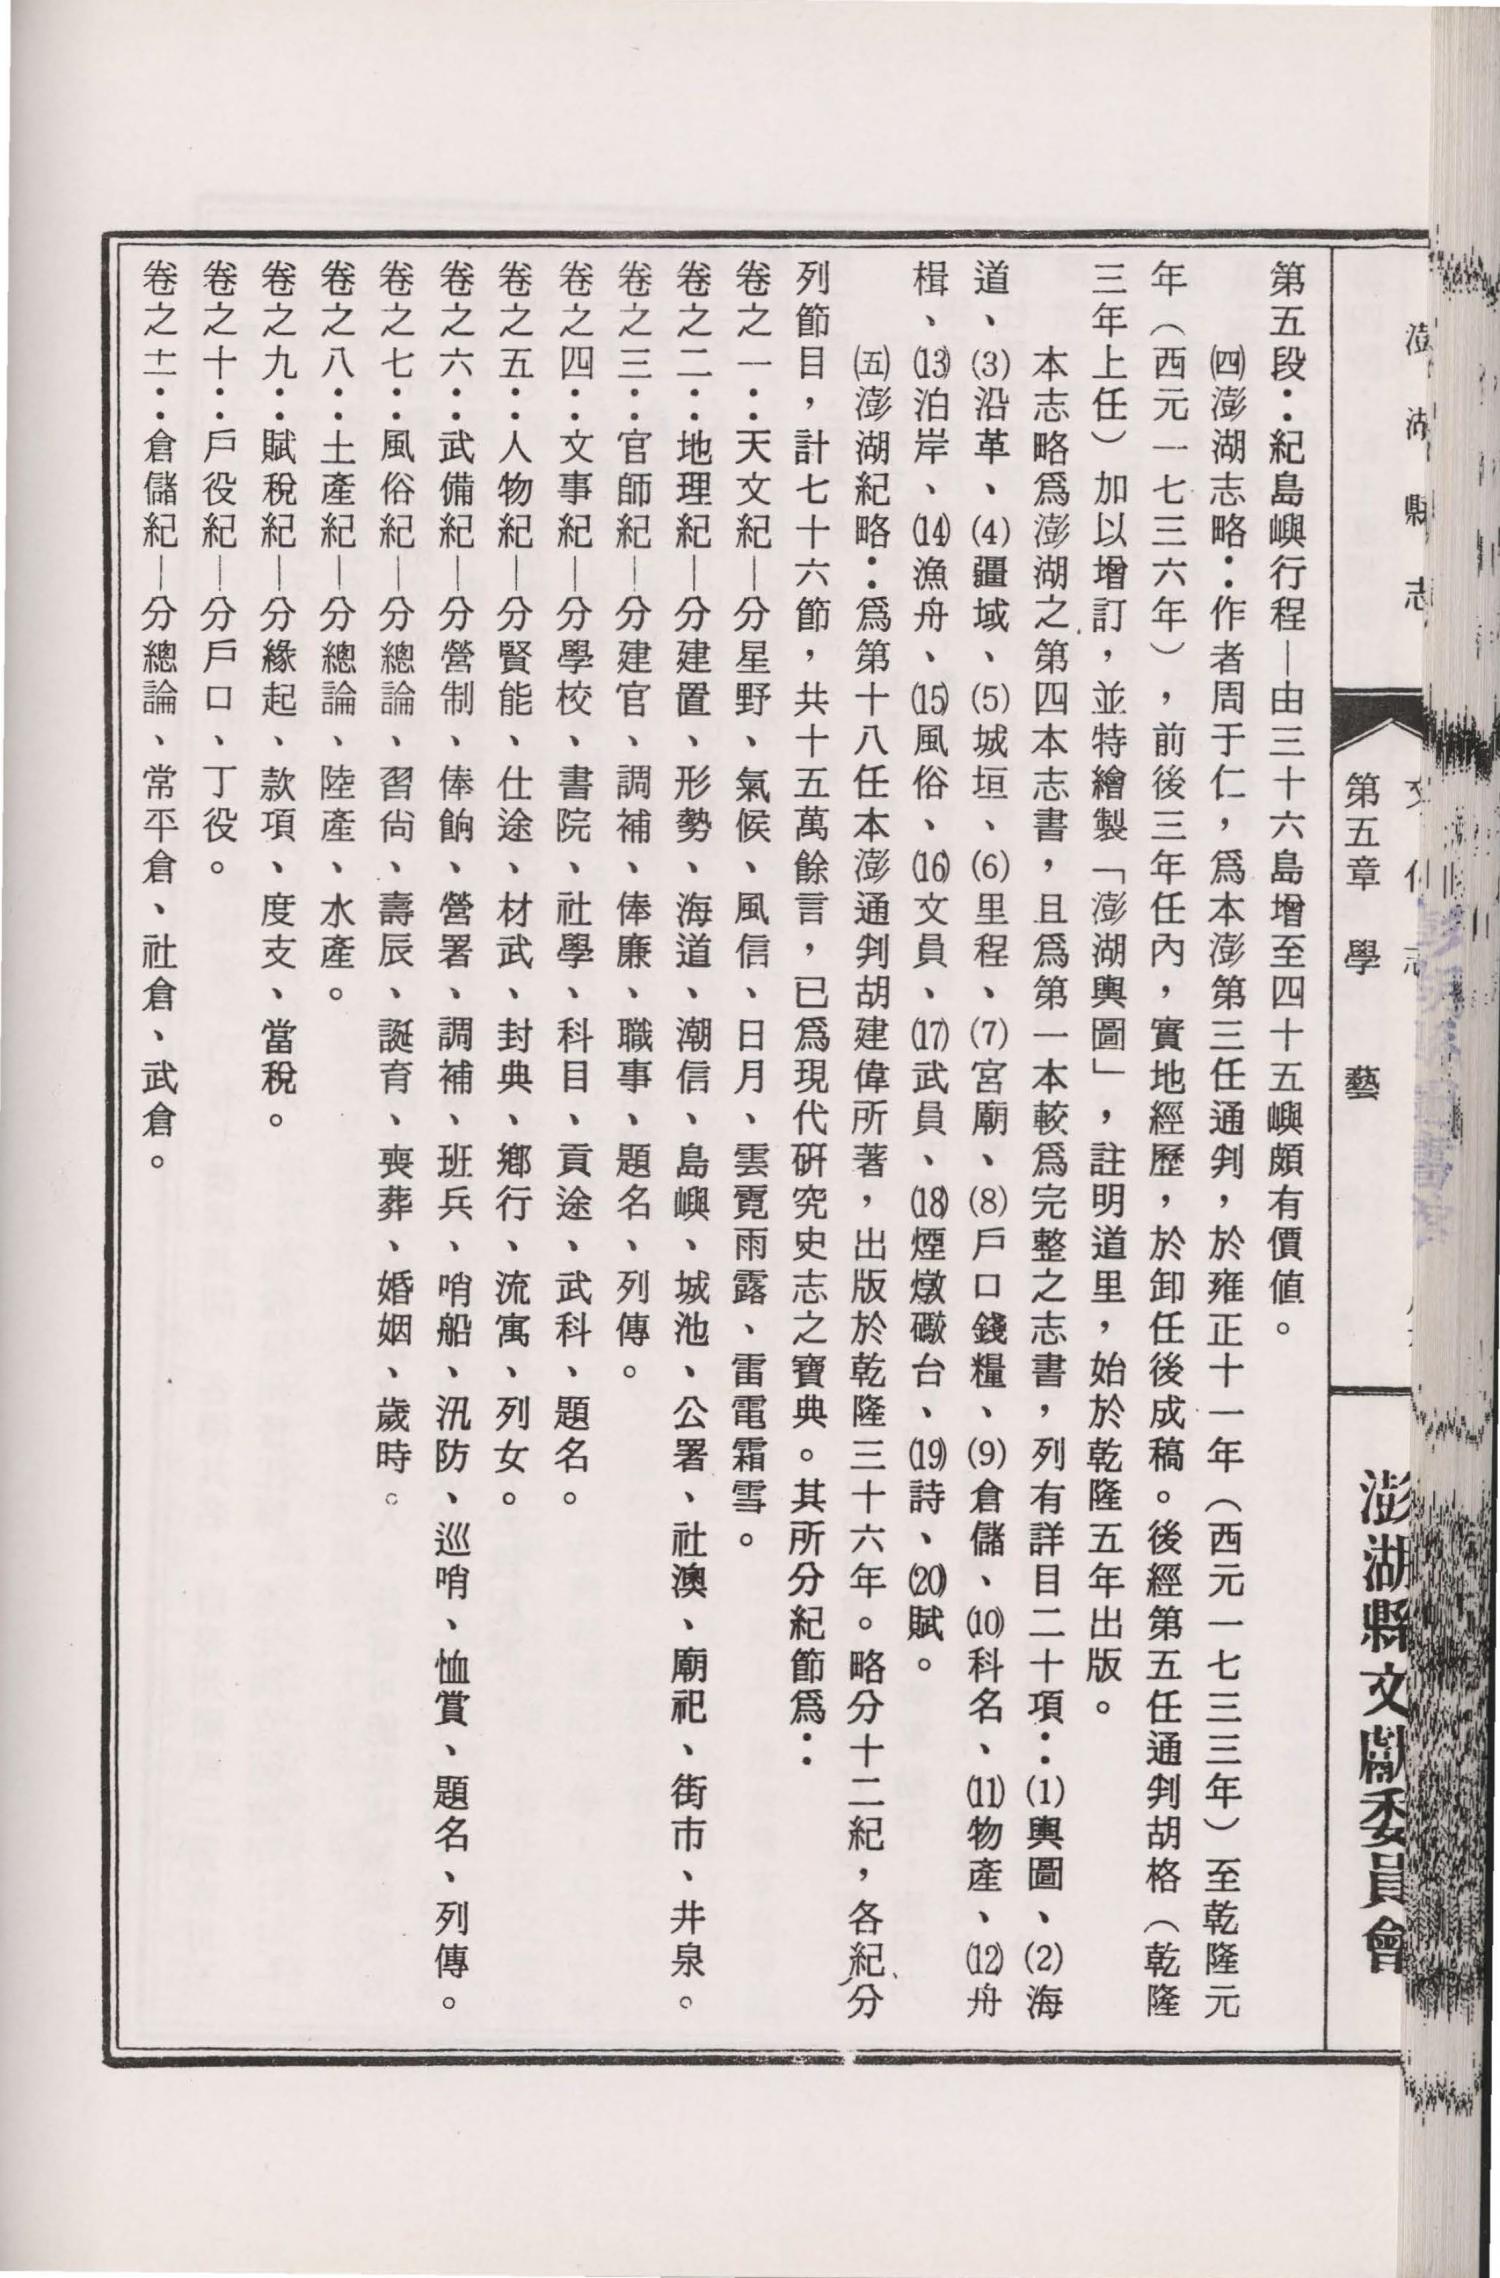 澎湖縣志
文化志
第五章 學藝
澎湖縣文獻委員會
第五段：紀島嶼行程—由三十六島增至四十五嶼頗有價值。
㈣澎湖志略：作者周于仁，爲本澎第三任通判，於雍正十一年（西元一七三三年）至乾隆元
年（西元一七三六年），前後三年任內，實地經歷，於卸任後成稿。後經第五任通判胡格（乾隆
三年上任）加以增訂，並特繪製「澎湖輿圖」，註明道里，始於乾隆五年出版。
本志略爲澎湖之第四本志書，且爲第一本較爲完整之志書，列有詳目二十項：(1)輿圖、(2)海
道、(3)沿革、(4)疆域、(5)城垣、(6)里程、(7)宮廟、(8)戶口錢糧、(9)倉儲、(10)科名、(11)物產、(12)舟
楫、(13)泊岸、(14)漁舟、(15)風俗、(16)文員、(17)武員、(18)煙燉礮台、(19)詩、(20)賦。
㈤澎湖紀略：爲第十八任本澎通判胡建偉所著，出版於乾隆三十六年。略分十二紀，各紀分
列節目，計七十六節，共十五萬餘言，已爲現代研究史志之寶典。其所分紀節爲：
卷之一：天文紀—分星野、氣候、風信、日月、雲霓雨露、雷電霜雪。
卷之二：地理紀—分建置、形勢、海道、潮信、島嶼、城池、公署、社澳、廟祀、街市、井泉。
卷之三：官師紀—分建官、調補、俸廉、職事、題名、列傳。
卷之四：文事紀—分學校、書院、社學、科目、貢途、武科、題名。
卷之五：人物紀—分賢能、仕途、材武、封典、鄉行、流寓、列女。
卷之六：武備紀—分營制、俸餉、營署、調補、班兵、哨船、汛防、巡哨、恤賞、題名、列傳。
卷之七：風俗紀—分總論、習尙、壽辰、誕育、喪葬、婚姻、歲時。
卷之八：土產紀—分總論、陸產、水產。
卷之九：賦稅紀—分緣起、款項、度支、當稅。
卷之十：戶役紀—分戶口、丁役。
卷之十一：倉儲紀—分總論、常平倉、社倉、武倉。